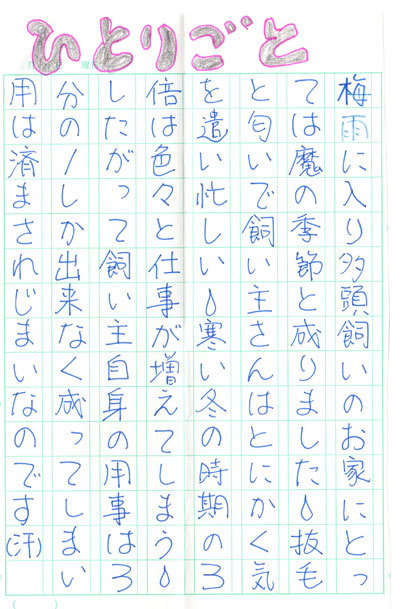 ひとりごと
梅雨に入り多頭飼いのお家にとっ
ては魔の季節と成りました💧抜毛
と匂いで飼い主さんはとにかく気
を遣い忙しい💧寒い冬の時期の3
倍は色々と仕事が増えてしまう💧
したがって飼い主自身の用事は3
分の1しか出来なく成ってしまい
用は済まされじまいなのです(汗)